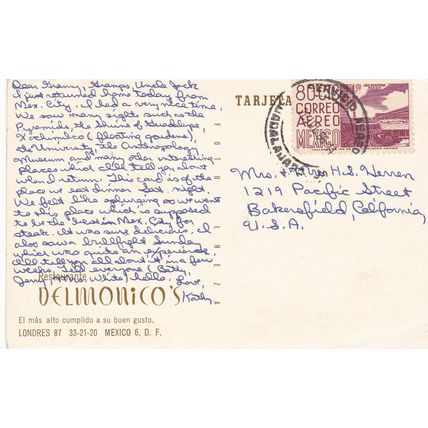 Dear Granny, Gramps, Uncle Jack
I just returned home today from
Mex. City. I had a very nice time.
We saw many sights such as the
Pyramids, the Shrine of Guadalupe
Xochimilco (floating gardens),
the University, the Anthropology
Museum and many other interesting
places which I'll tell you about
when I return. This card is of the
place we eat dinner last night.
We felt like splurging so we went
to this place which is supposed
to be the best in Mex. City for
steak. It was sure delicious. I
also saw a bullfight Sunday
which was quite an experience
I'll tell you all about it in a few
weeks. Tell everyone (Betty,
Mrs. White) hello. Love,
Kathy
Restaurante
DELMONICO'S
El más alto cumplido a su buen gusto.
LONDRES 87 33-21-20 MEXICO 6, D. F.
TARJETA
80
CORREO
AEREO
MEXICO
SERVICIO AEREO
GUADALAJARA
Mr. & Mrs. H.S. Herren
1219 Pacific Street
Bakersfield, California,
U.S.A.